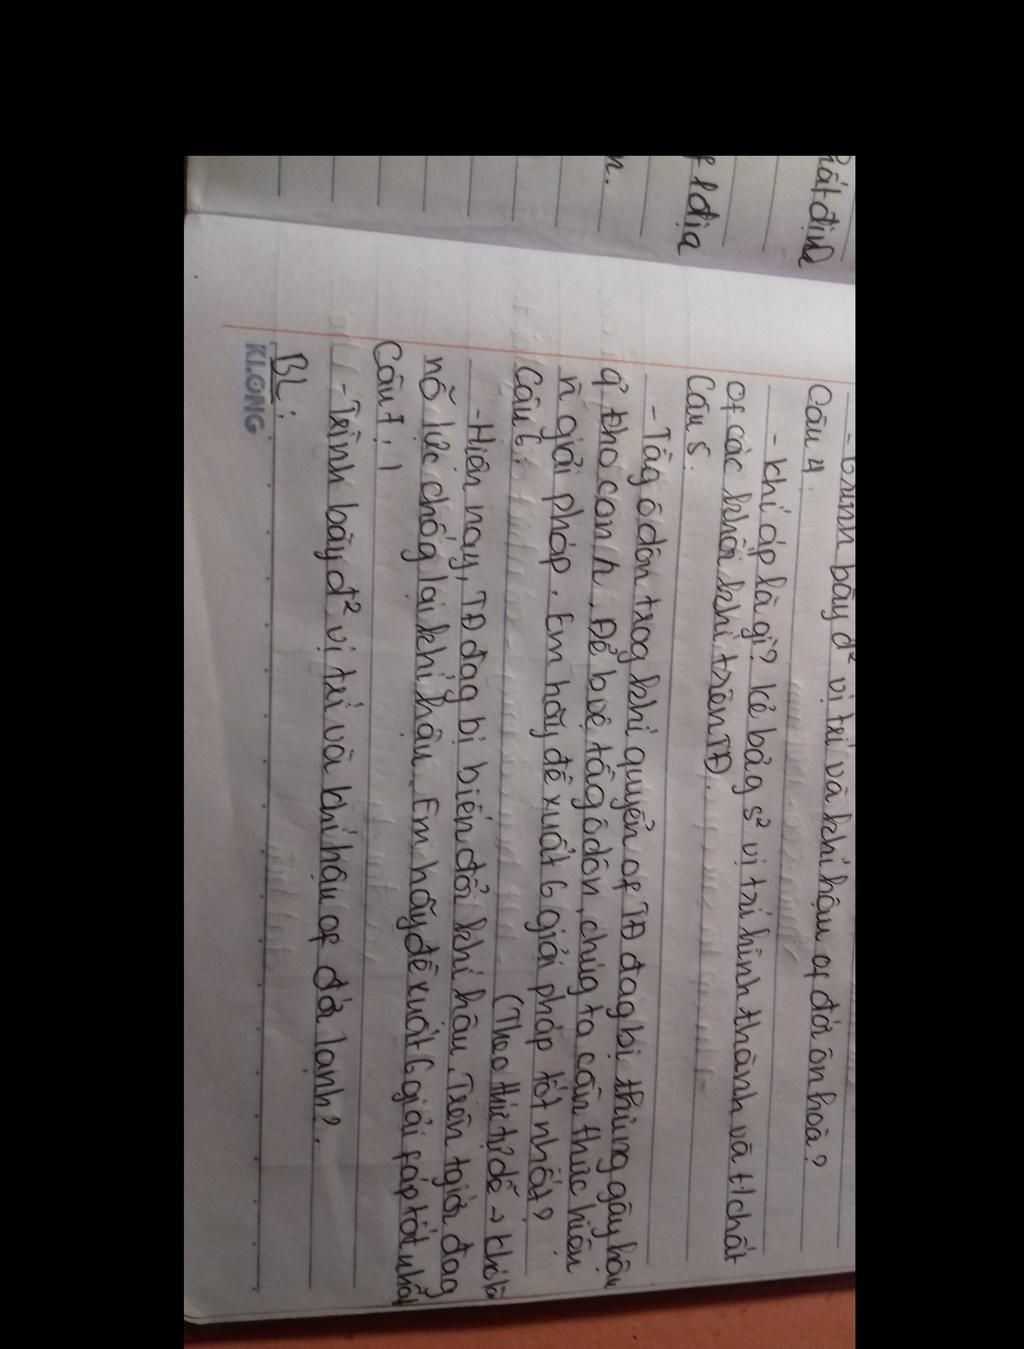 hất định
f 1 địa
n.
- Trình bày đ² vị trí và khí hậu of đới ôn hoà?
Câu 4:
- Khí áp là gì? Kẻ bảg s² vị trí hình thành và t/chất
of các khối khí trên TĐ.
Câu 5.
- Tầg ôdôn trog khí quyển of TĐ đag bị thủng gây hậu
q' cho con n. Để bvệ tầg ôdôn, chúg ta cần thực hiện
n giải pháp. Em hãy đề xuất 6 giải pháp tốt nhất?
Câu 6: (Theo thứ tự dễ → khó
- Hiện nay, TĐ đag bị biến đổi khí hậu. Trên tgiới đag
nỗ lực chốg lại khí hậu. Em hãy đề xuất 6 giải fáp tốt nhất
Câu 7:
- Trình bày đ² vị trí và khí hậu of đới lạnh?.
BL:
KLONG